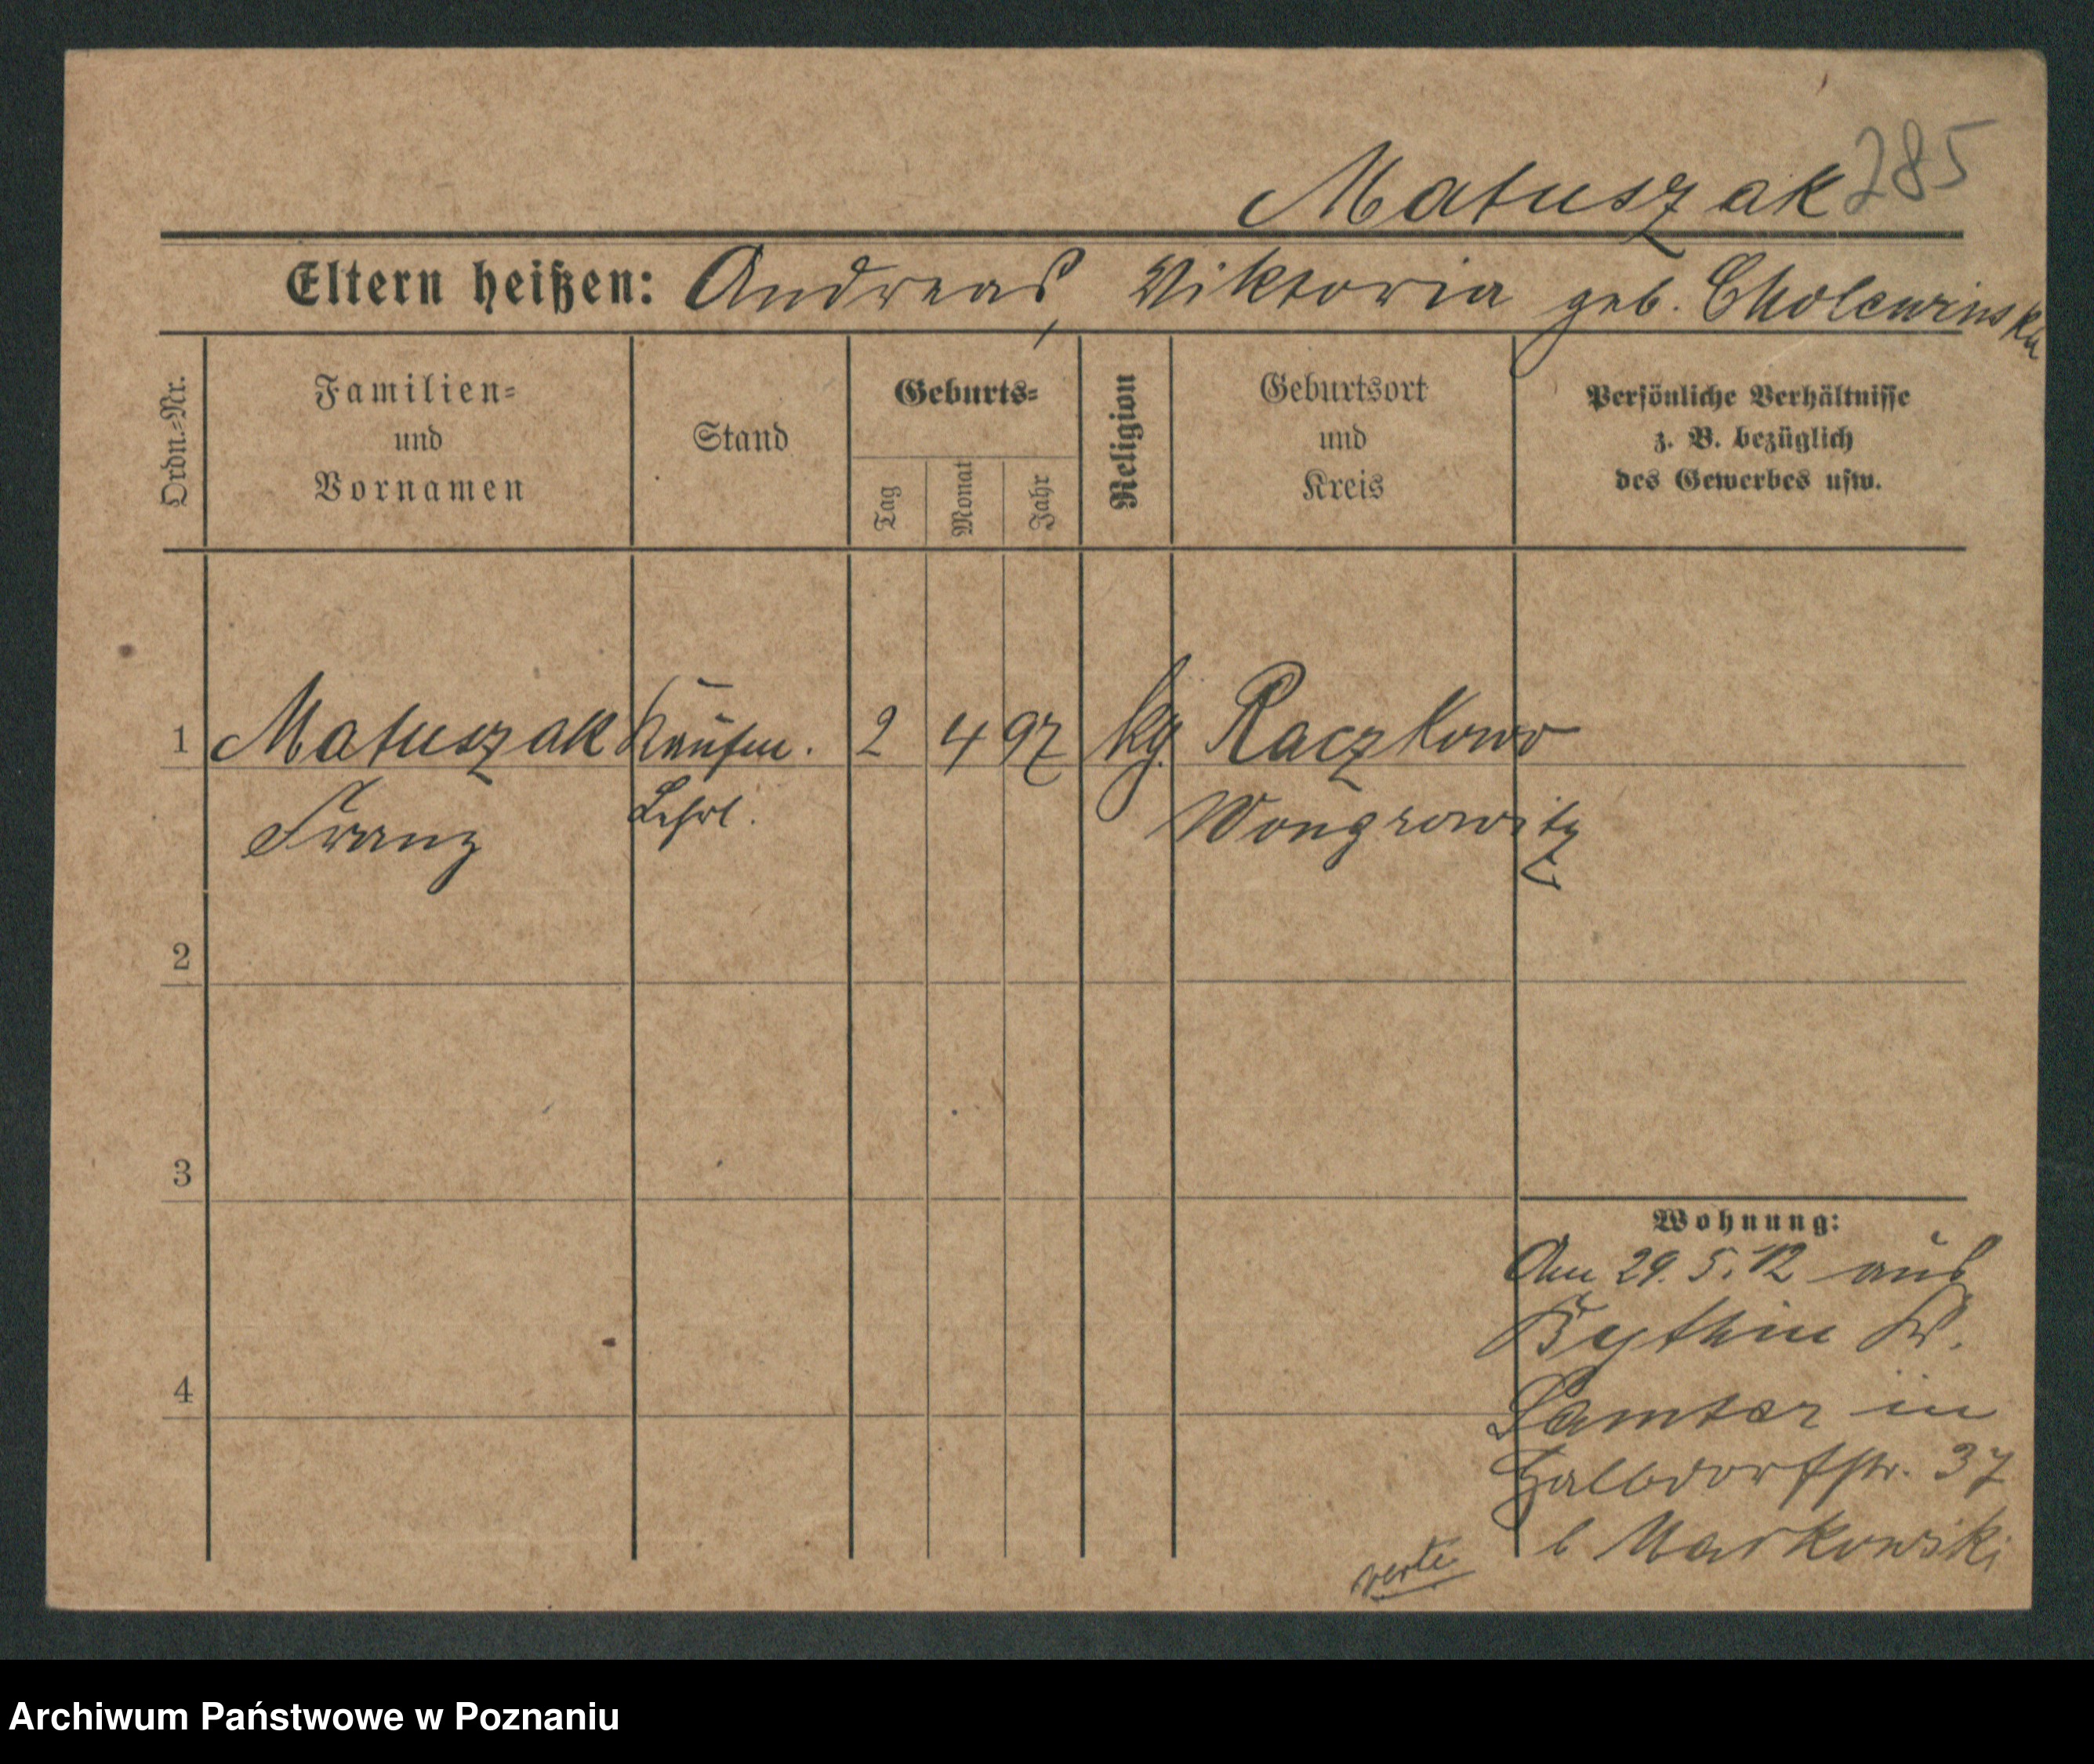 285
Matuszak
Eltern heißen: Andreas, Viktoria geb. Cholewinska
Ordn.-Nr.
Familien-
und
Vornamen
Stand
Geburts-
Tag
Monat
Jahr
Religion
Geburtsort
und
Kreis
Persönliche Verhältnisse
z. B. bezüglich
des Gewerbes usw.
1 Matuszak Kaufm. 2 4 97 kg. Raczkowo
Franz Lehrl. Wongrowitz
2
3
4
Wohnung:
Am 29. 5. 12 aus
Bythin Kr.
Samter in
Halbdorfstr. 37
b Markowski
verte
Archiwum Państwowe w Poznaniu